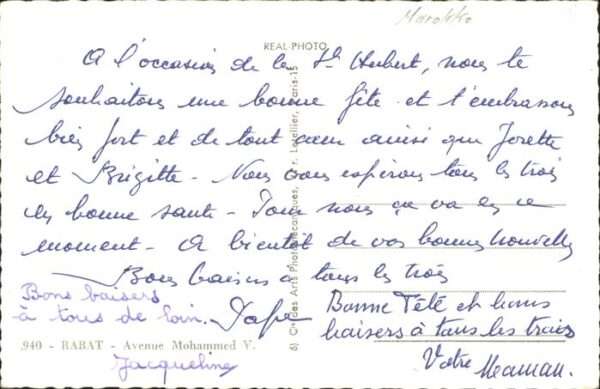 Marokko
REAL-PHOTO
A l'occasion de la St Hubert, nous te
souhaitons une bonne fête et t'embrassons
bien fort et de tout cœur ainsi que Josette
et Brigitte - Nous vous espérons tous les trois
en bonne santé - Pour nous ça va en ce
moment - A bientôt de vos bonnes nouvelles
Bons baisers à tous les trois
Papa
Bons baisers
à tous de loin.
Jacqueline
Bonne Fête et bons
baisers à tous les trois
Votre Maman.
940 - RABAT - Avenue Mohammed V.
des Arts Photomécaniques, r. Letellier, Paris-15